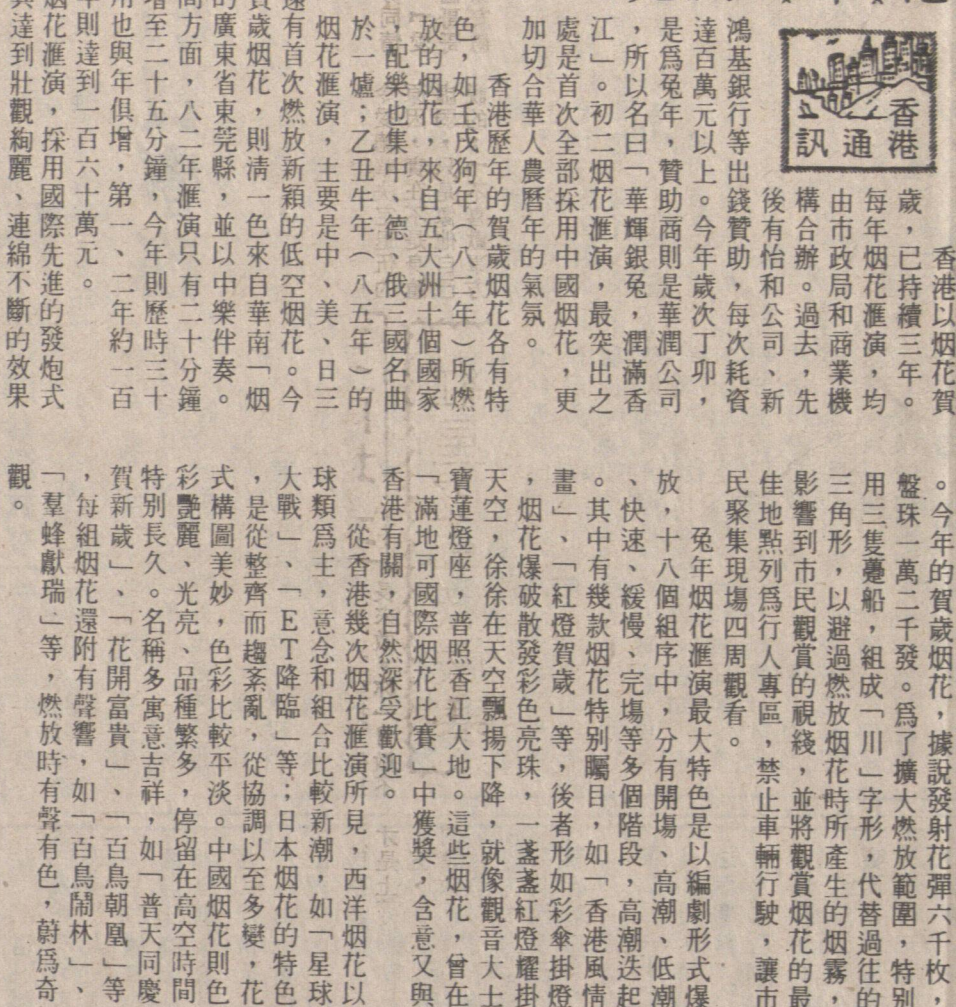 香港通訊
香港以烟花賀
歲，已持續三年。
每年烟花滙演，均
由市政局和商業機
構合辦。過去，先
後有怡和公司、新
鴻基銀行等出錢贊助，每次耗資
達百萬元以上。今年歲次丁卯，
是爲兔年，贊助商則是華潤公司
，所以名曰「華輝銀兔，潤滿香
江」。初二烟花滙演，最突出之
處是首次全部採用中國烟花，更
加切合華人農曆年的氣氛。
香港歷年的賀歲烟花各有特
色，如壬戌狗年（八二年）所燃
放的烟花，來自五大洲十個國家
，配樂也集中、德、俄三國名曲
於一爐；乙丑牛年（八五年）的
烟花滙演，主要是中、美、日三
有首次燃放新穎的低空烟花。今
歲烟花，則淸一色來自華南「烟
的廣東省東莞縣，並以中樂伴奏。
間方面，八二年滙演只有二十分鐘
增至二十五分鐘，今年則歷時三十
用也與年俱增，第一、二年約一百
年則達到一百六十萬元。
烟花滙演，採用國際先進的發炮式
達到壯觀絢麗、連綿不斷的效果
。今年的賀歲烟花，據說發射花彈六千枚
盤珠一萬二千發。爲了擴大燃放範圍，特別
用三隻躉船，組成「川」字形，代替過往的
三角形，以避過燃放烟花時所產生的烟霧，
影響到市民觀賞的視綫，並將觀賞烟花的最
佳地點列爲行人專區，禁止車輛行駛，讓市
民聚集現場四周觀看。
兔年烟花滙演最大特色是以編劇形式爆
放，十八個組序中，分有開場、高潮、低潮
、快速、緩慢、完場等多個階段，高潮迭起
。其中有幾款烟花特別矚目，如「香港風情
畫」、「紅燈賀歲」等，後者形如彩傘掛燈
，烟花爆破散發彩色亮珠，一盞盞紅燈耀掛
天空，徐徐在天空飄揚下降，就像觀音大士
寶蓮燈座，普照香江大地。這些烟花，曾在
「滿地可國際烟花比賽」中獲獎，含意又與
香港有關，自然深受歡迎。
從香港幾次烟花滙演所見，西洋烟花以
球類爲主，意念和組合比較新潮，如「星球
大戰」、「ET降臨」等；日本烟花的特色
，是從整齊而趨紊亂，從協調以至多變，花
式構圖美妙，色彩比較平淡。中國烟花則色
彩艷麗、光亮、品種繁多，停留在高空時間
特別長久。名稱多寓意吉祥，如「普天同慶
賀新歲」、「花開富貴」、「百鳥朝凰」等
，每組烟花還附有聲響，如「百鳥鬧林」、
「羣蜂獻瑞」等，燃放時有聲有色，蔚爲奇
觀。